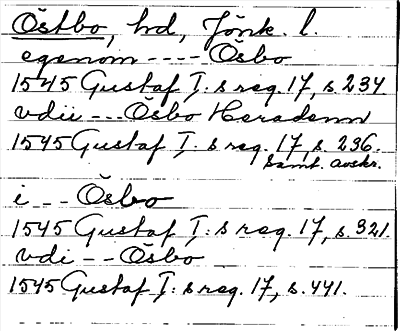 Östbo, hd, Jönk. l.
egenom ---- Ösbo
1545 Gustaf I:s reg. 17, s. 234
vdii --- Ösbo Heradenn
1545 Gustaf I:s reg. 17, s. 236.
samt. avskr.
i -- Ösbo
1545 Gustaf I:s reg. 17, s. 321.
vdi -- Ösbo
1545 Gustaf I:s reg. 17, s. 441.